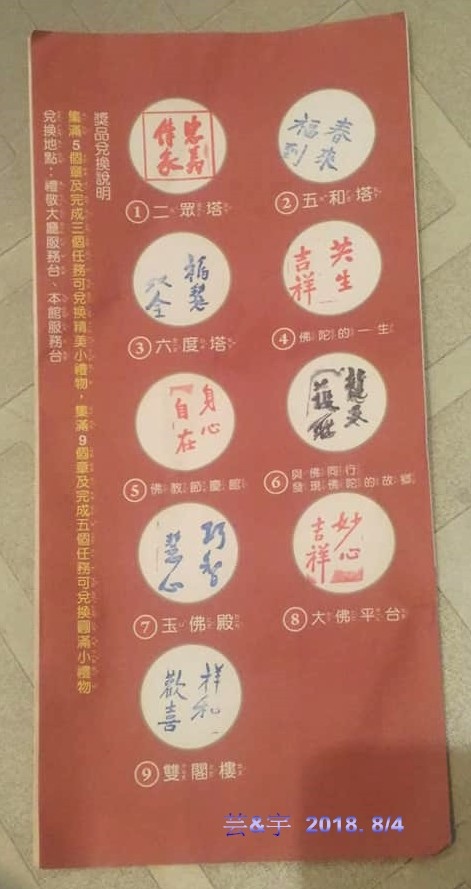 獎品兌換說明
集滿5個章及完成三個任務可兌換精美小禮物，集滿9個章及完成五個任務可兌換圓滿小禮物
兌換地點：禮敬大廳服務台、本館服務台
忠義
傳家
①二眾塔
春來
福到
②五和塔
福慧
双全
③六度塔
共生
吉祥
④佛陀的一生
身心
自在
⑤佛教節慶館
龍天
護佑
⑥與佛同行
發現佛陀的故鄉
巧智
慧心
⑦玉佛殿
妙心
吉祥
⑧大佛平台
祥和
歡喜
⑨雙閣樓
芸&宇 2018. 8/4